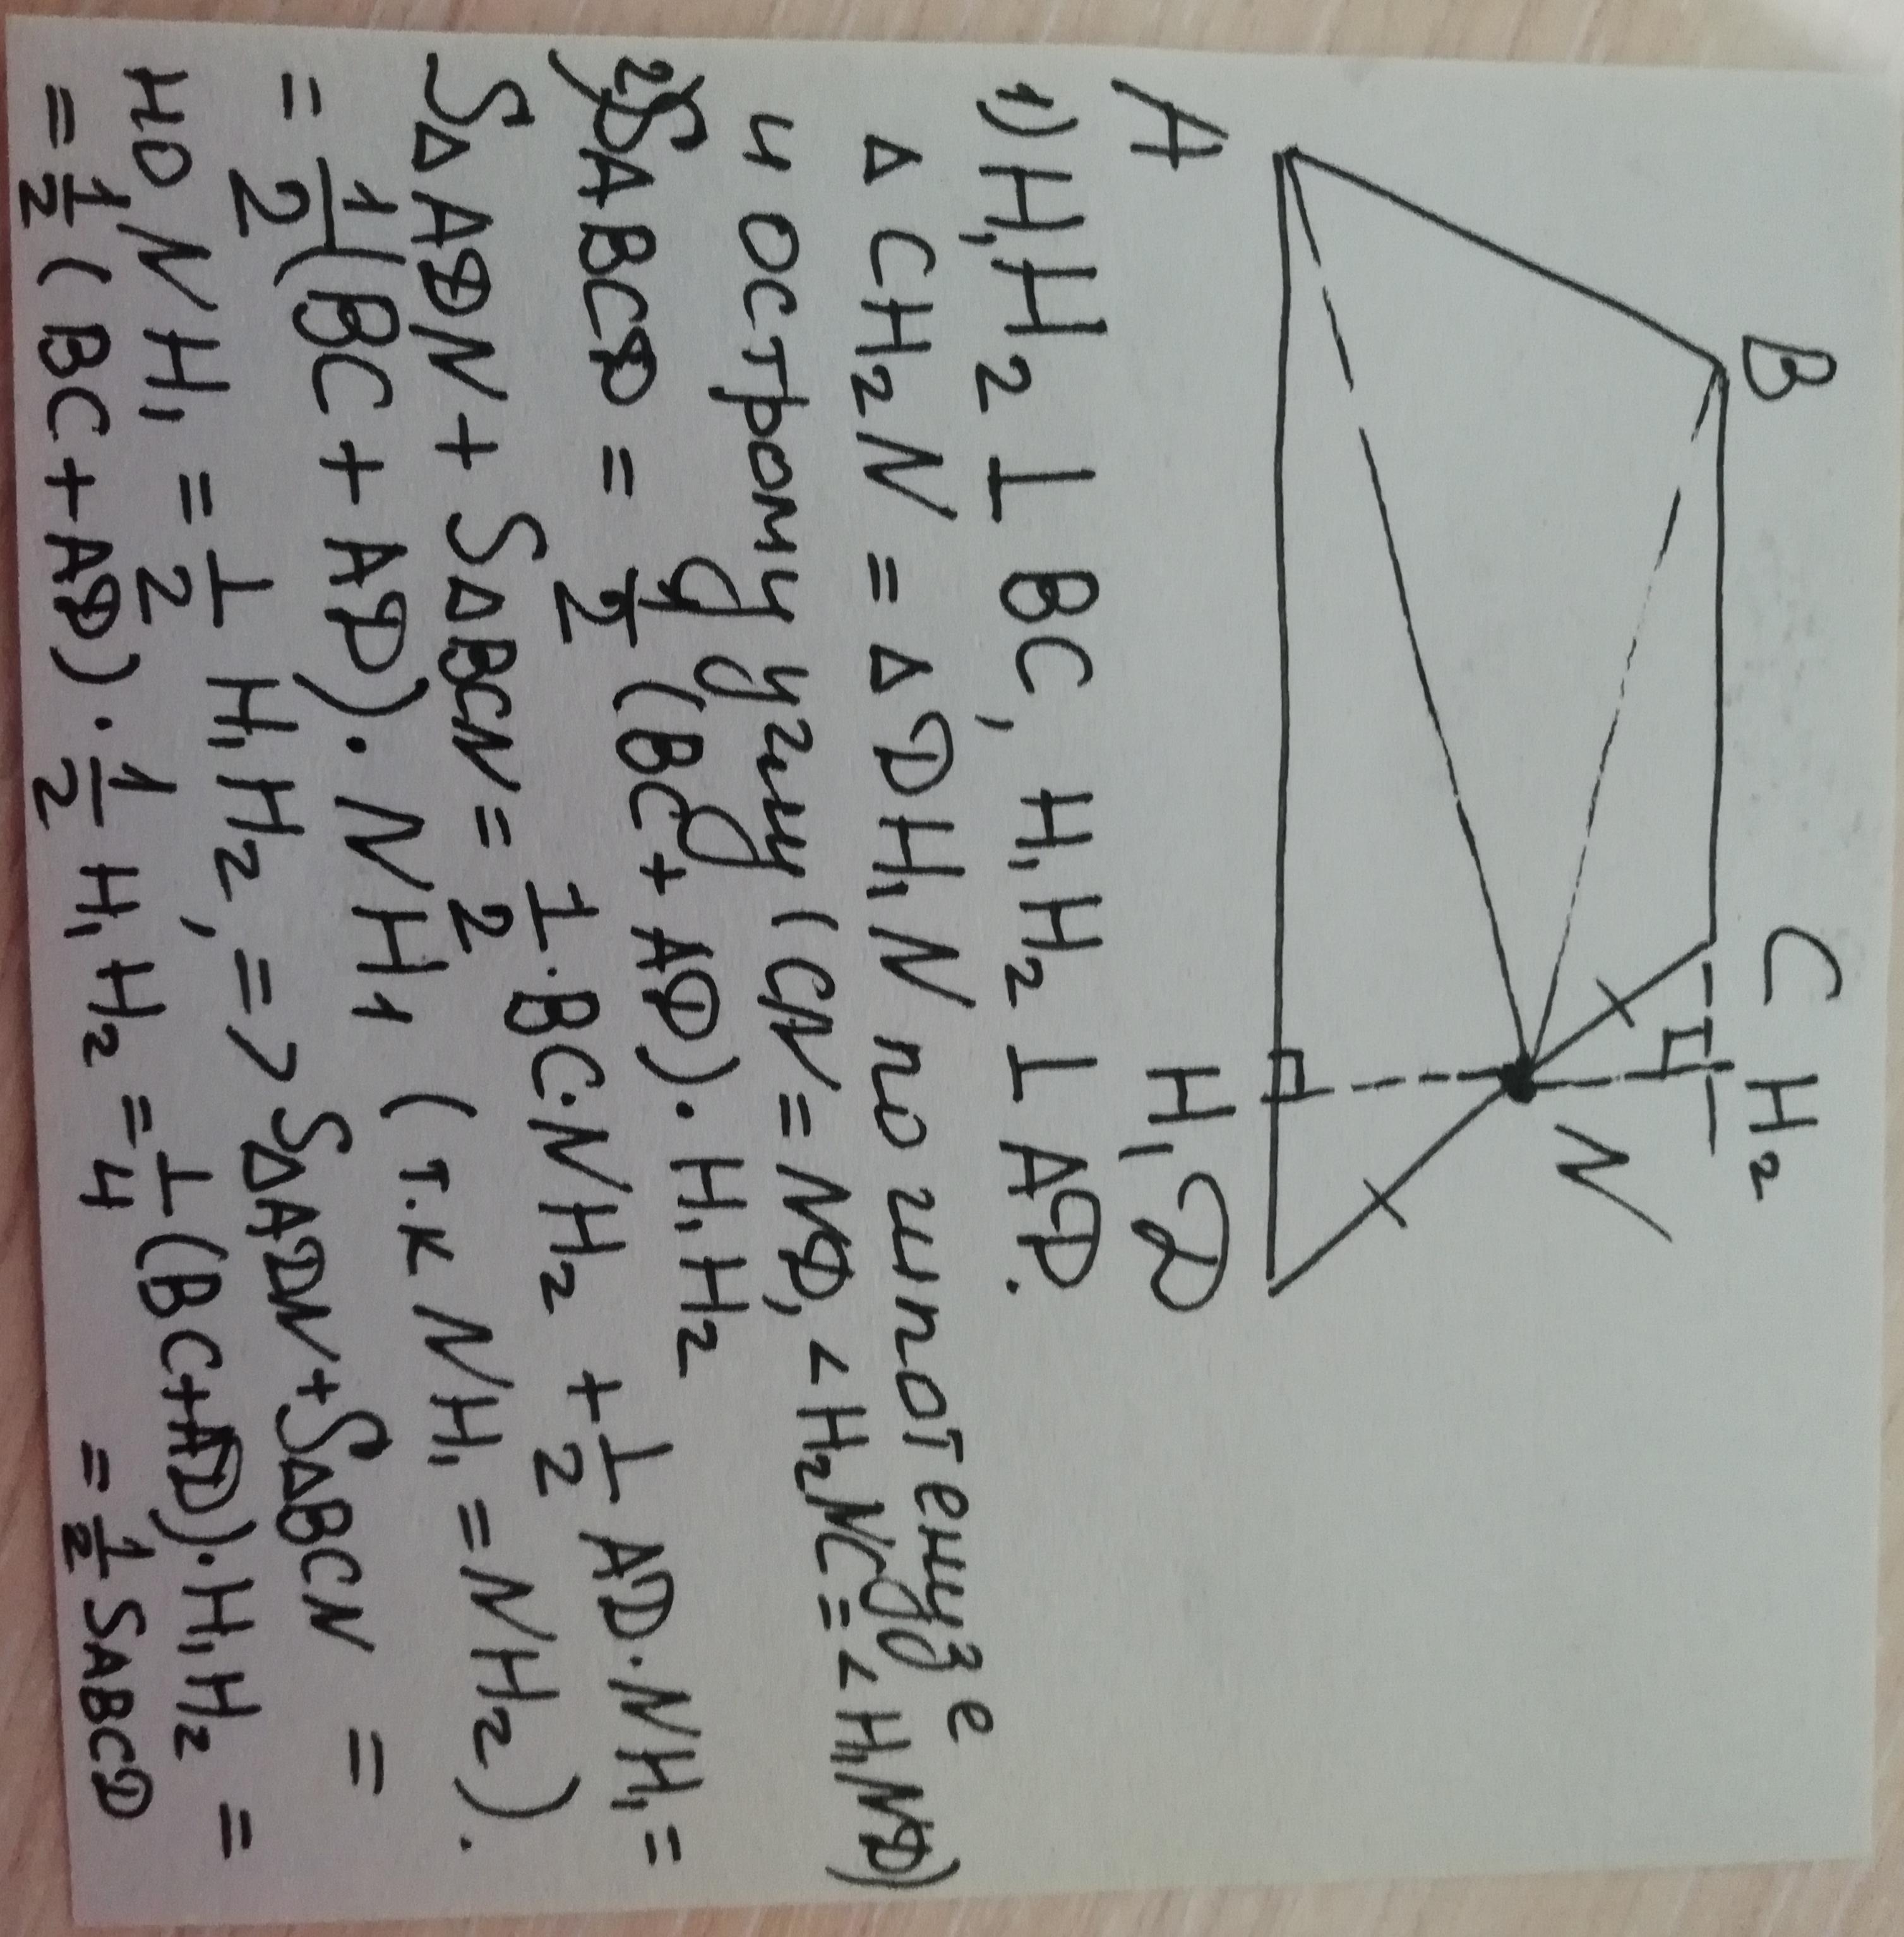 B C H₂
N
A H₁ D
1) H₁H₂ ⊥ BC, H₁H₂ ⊥ AD.
Δ CH₂N = Δ DH₁N по гипотенузе
и острому углу (CN = ND, ∠H₂NC = ∠H₁ND)
2) SABCD = 1/2 (BC + AD) · H₁H₂
SΔADN + SΔBCN = 1/2 · BC · NH₂ + 1/2 AD · NH₁ =
= 1/2 (BC + AD) · NH₁ (т.к NH₁ = NH₂).
но NH₁ = 1/2 H₁H₂, => SΔADN + SΔBCN =
= 1/2 (BC + AD) · 1/2 H₁H₂ = 1/4 (BC + AD) · H₁H₂ =
= 1/2 SABCD